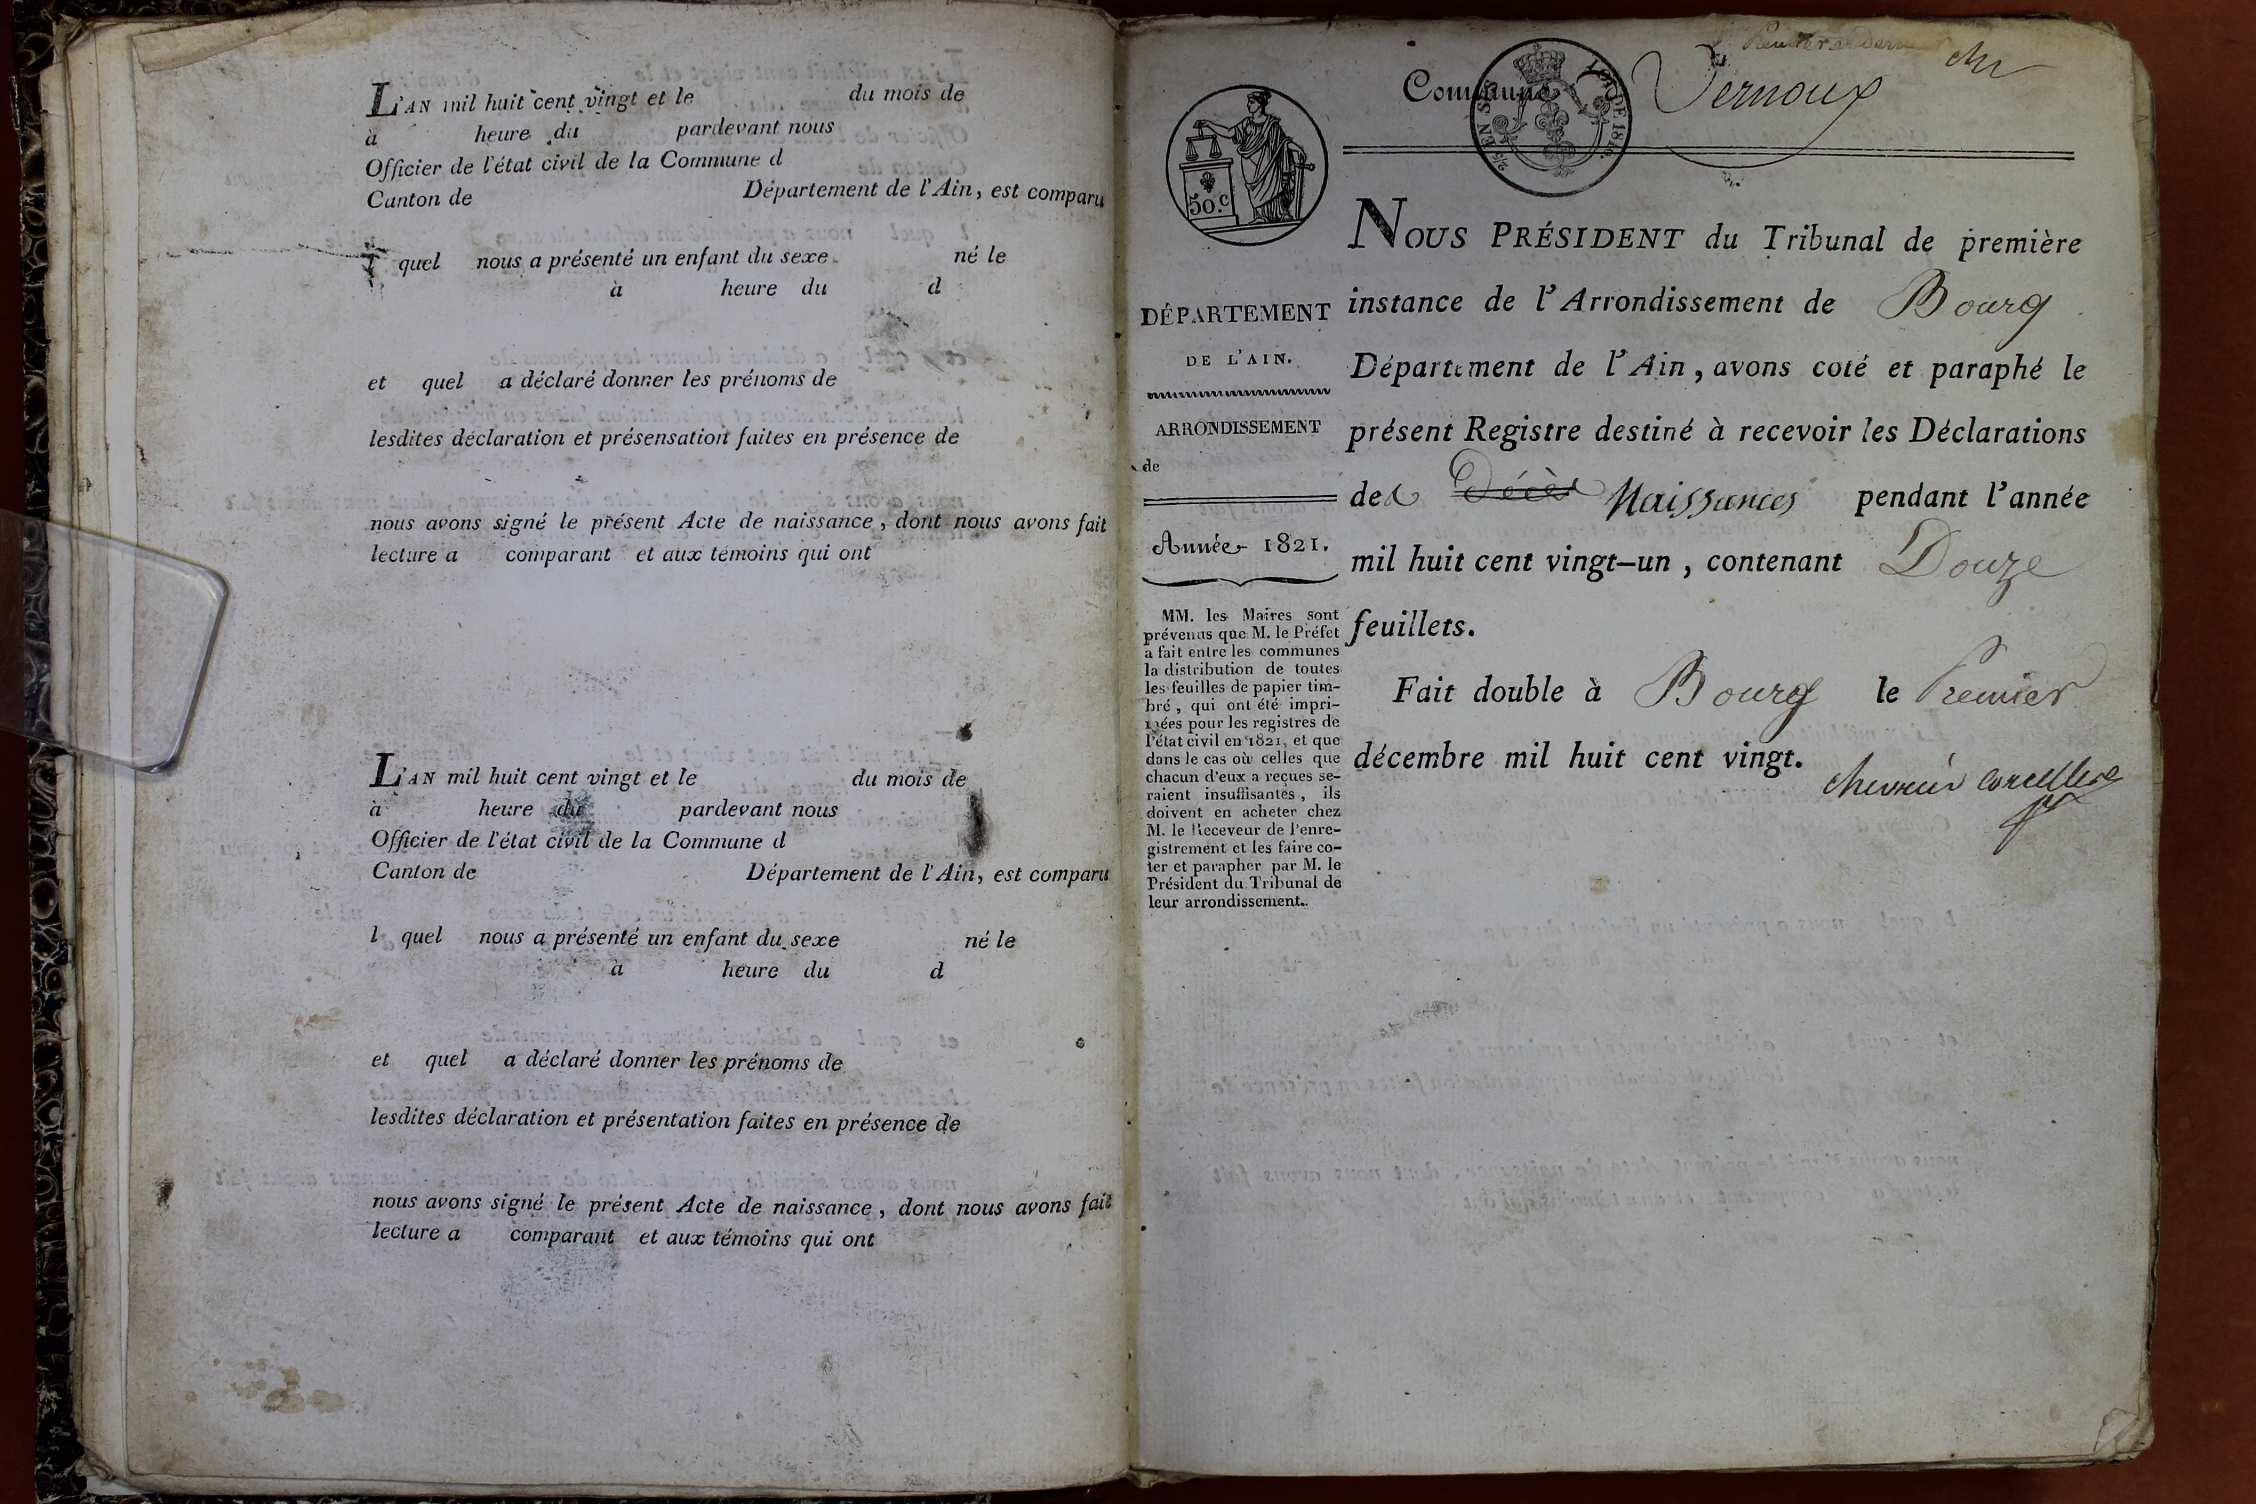 L'AN mil huit cent vingt et le du mois de
à heure du pardevant nous
Officier de l'état civil de la Commune d
Canton de Département de l'Ain, est comparu
l quel nous a présenté un enfant du sexe né le
à heure du d
et quel a déclaré donner les prénoms de
lesdites déclaration et présensation faites en présence de
nous avons signé le présent Acte de naissance, dont nous avons fait
lecture a comparant et aux témoins qui ont
L'AN mil huit cent vingt et le du mois de
à heure du pardevant nous
Officier de l'état civil de la Commune d
Canton de Département de l'Ain, est comparu
l quel nous a présenté un enfant du sexe né le
à heure du d
et quel a déclaré donner les prénoms de
lesdites déclaration et présentation faites en présence de
nous avons signé le présent Acte de naissance, dont nous avons fait
lecture a comparant et aux témoins qui ont
Commune Vernoux
LOI DE 1816.
EN SUS
50.c
DÉPARTEMENT
DE L'AIN.
ARRONDISSEMENT
de
Année 1821.
MM. les Maires sont
prévenus que M. le Préfet
a fait entre les communes
la distribution de toutes
les feuilles de papier tim-
bré, qui ont été impri-
mées pour les registres de
l'état civil en 1821, et que
dans le cas où celles que
chacun d'eux a reçues se-
raient insuffisantes, ils
doivent en acheter chez
M. le Receveur de l'enre-
gistrement et les faire co-
ter et parapher par M. le
Président du Tribunal de
leur arrondissement.
NOUS PRÉSIDENT du Tribunal de première
instance de l'Arrondissement de Bourg
Département de l'Ain, avons coté et paraphé le
présent Registre destiné à recevoir les Déclarations
des Décès Naissances pendant l'année
mil huit cent vingt-un, contenant Douze
feuillets.
Fait double à Bourg le Premier
décembre mil huit cent vingt.